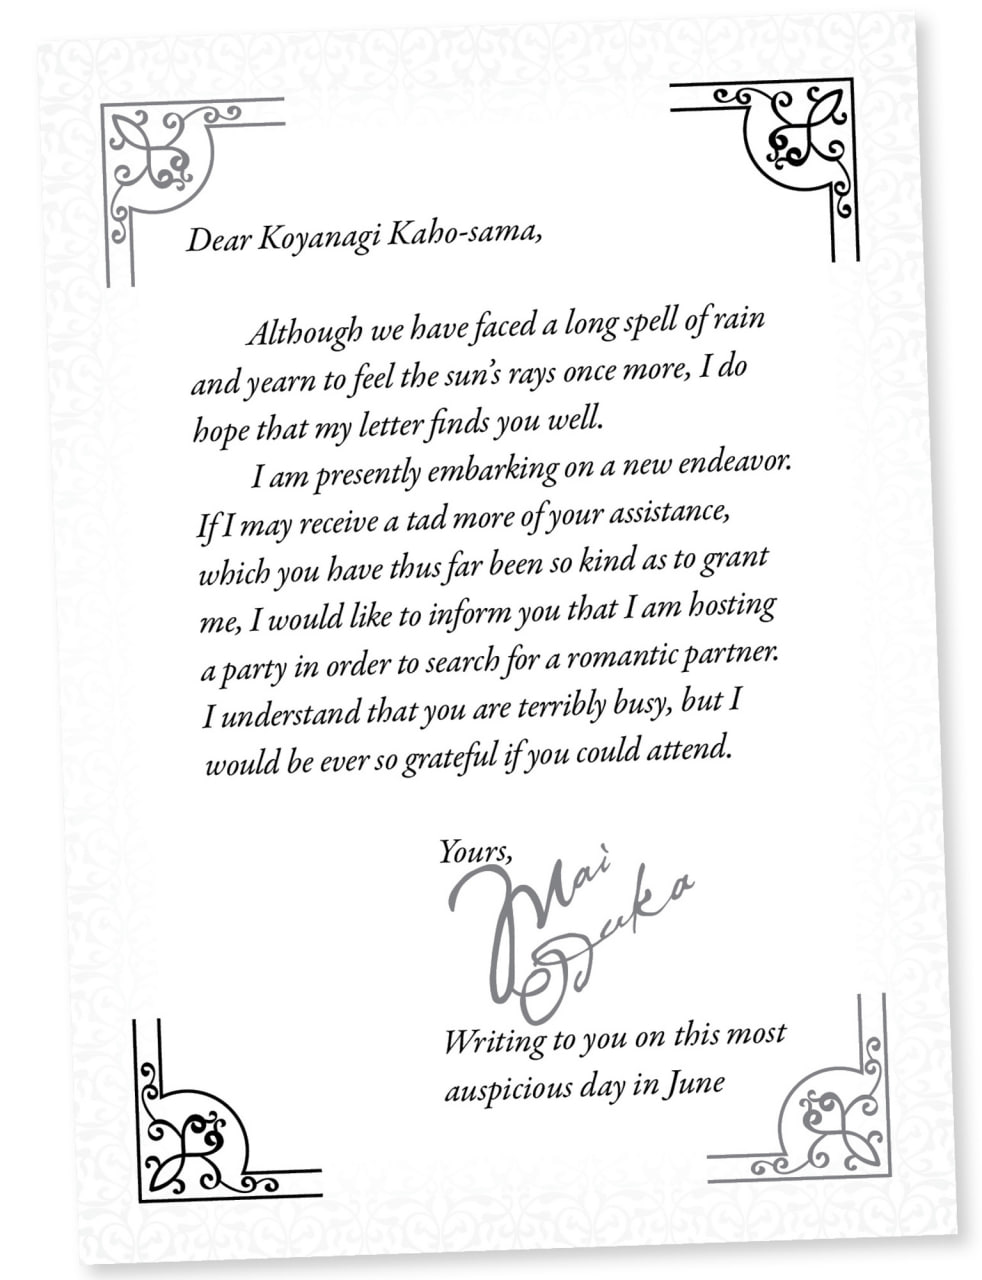 Dear Koyanagi Kaho-sama,
Although we have faced a long spell of rain
and yearn to feel the sun's rays once more, I do
hope that my letter finds you well.
I am presently embarking on a new endeavor.
If I may receive a tad more of your assistance,
which you have thus far been so kind as to grant
me, I would like to inform you that I am hosting
a party in order to search for a romantic partner.
I understand that you are terribly busy, but I
would be ever so grateful if you could attend.
Yours,
Mai
Ozuka
Writing to you on this most
auspicious day in June